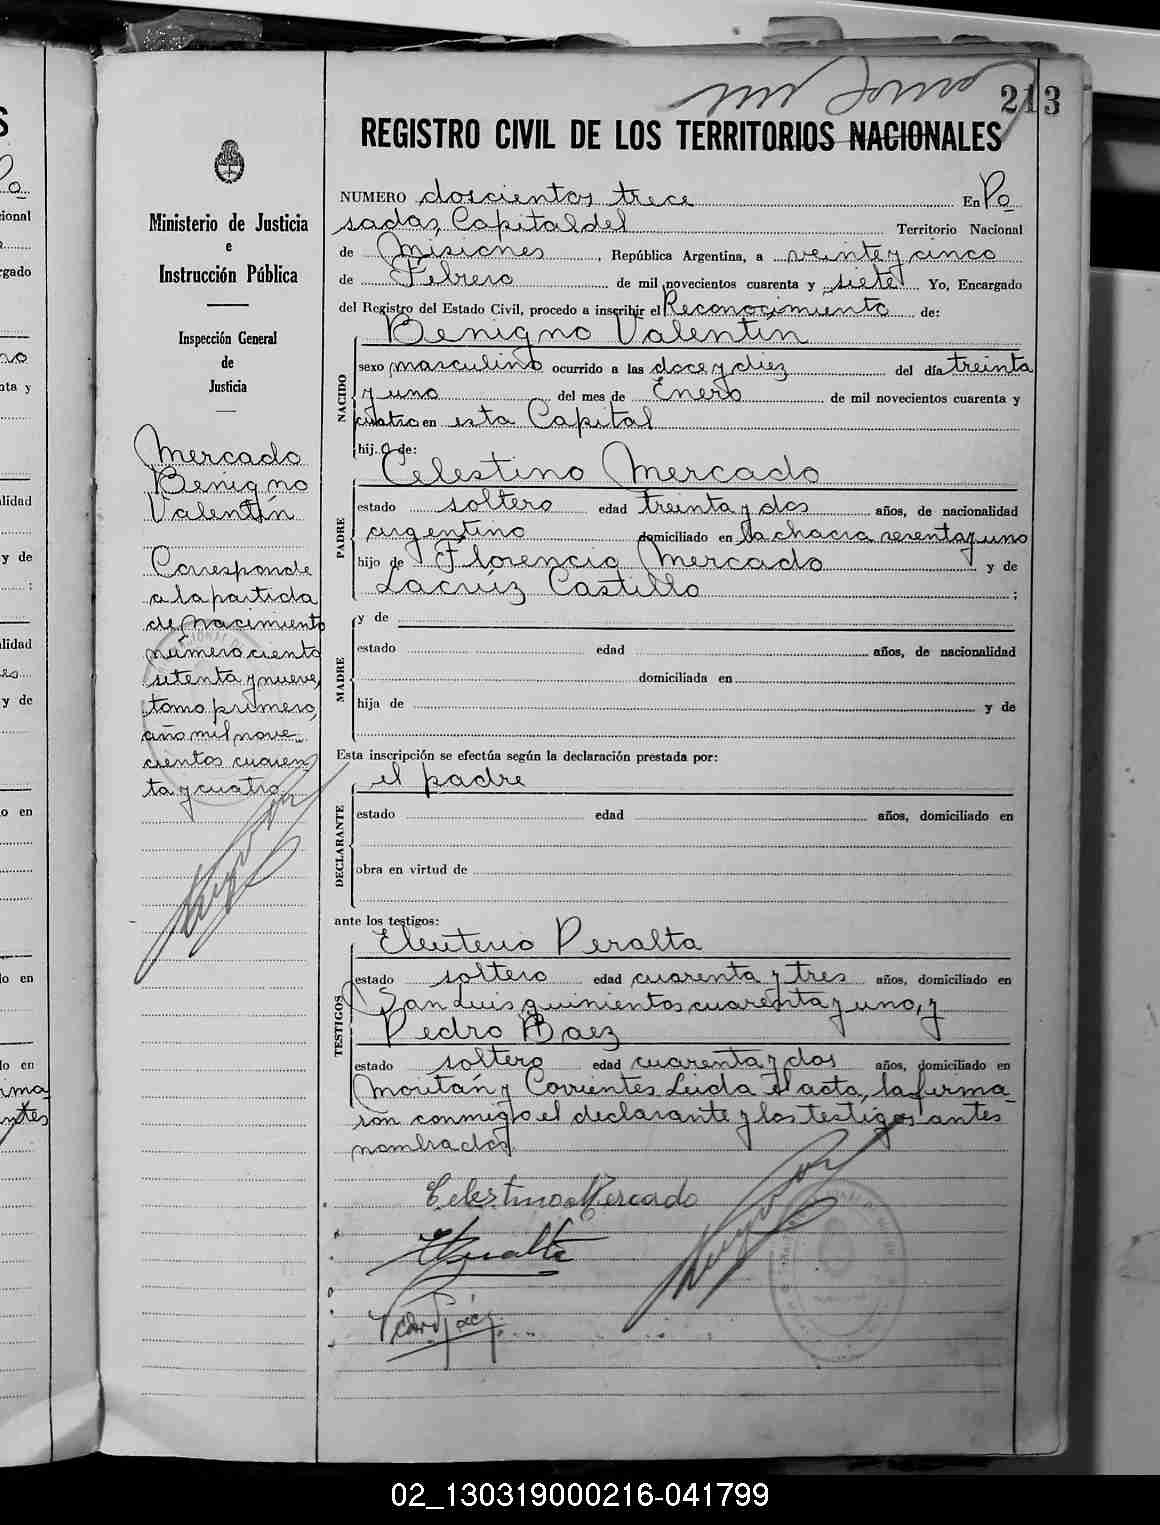 213
REGISTRO CIVIL DE LOS TERRITORIOS NACIONALES
Ministerio de Justicia
e
Instrucción Pública
Inspección General
de
Justicia
Mercado
Benigno
Valentín
Corresponde
a la partida
de nacimiento
número ciento
setenta y nueve,
tomo primero,
año mil nove
cientos cuaren
ta y cuatro
NUMERO doscientos trece En Po
sadas, Capital del Territorio Nacional
de Misiones, República Argentina, a veinte y cinco
de Febrero de mil novecientos cuarenta y siete Yo, Encargado
del Registro del Estado Civil, procedo a inscribir el Reconocimiento de:
Benigno Valentín
NACIDO
sexo masculino ocurrido a las doce y diez del día treinta
y uno del mes de Enero de mil novecientos cuarenta y
cuatro en esta Capital
hijo de:
Celestino Mercado
PADRE
estado soltero edad treinta y dos años, de nacionalidad
argentino domiciliado en la chacra sesenta y uno
hijo de Florencio Mercado y de
Lacrúz Castillo ;
MADRE
y de
estado edad años, de nacionalidad
domiciliada en
hija de y de
Esta inscripción se efectúa según la declaración prestada por:
el padre
DECLARANTE
estado edad años, domiciliado en
obra en virtud de
ante los testigos:
Eleuterio Peralta
TESTIGOS
estado soltero edad cuarenta y tres años, domiciliado en
San Luis quinientos cuarenta y uno, y
Pedro Baez
estado soltero edad cuarenta y dos años, domiciliado en
y Corrientes. Leida el acta, la firma
ron conmigo el declarante y los testigos antes
nombrados
Celestino Mercado
EPeralta
02_130319000216-041799